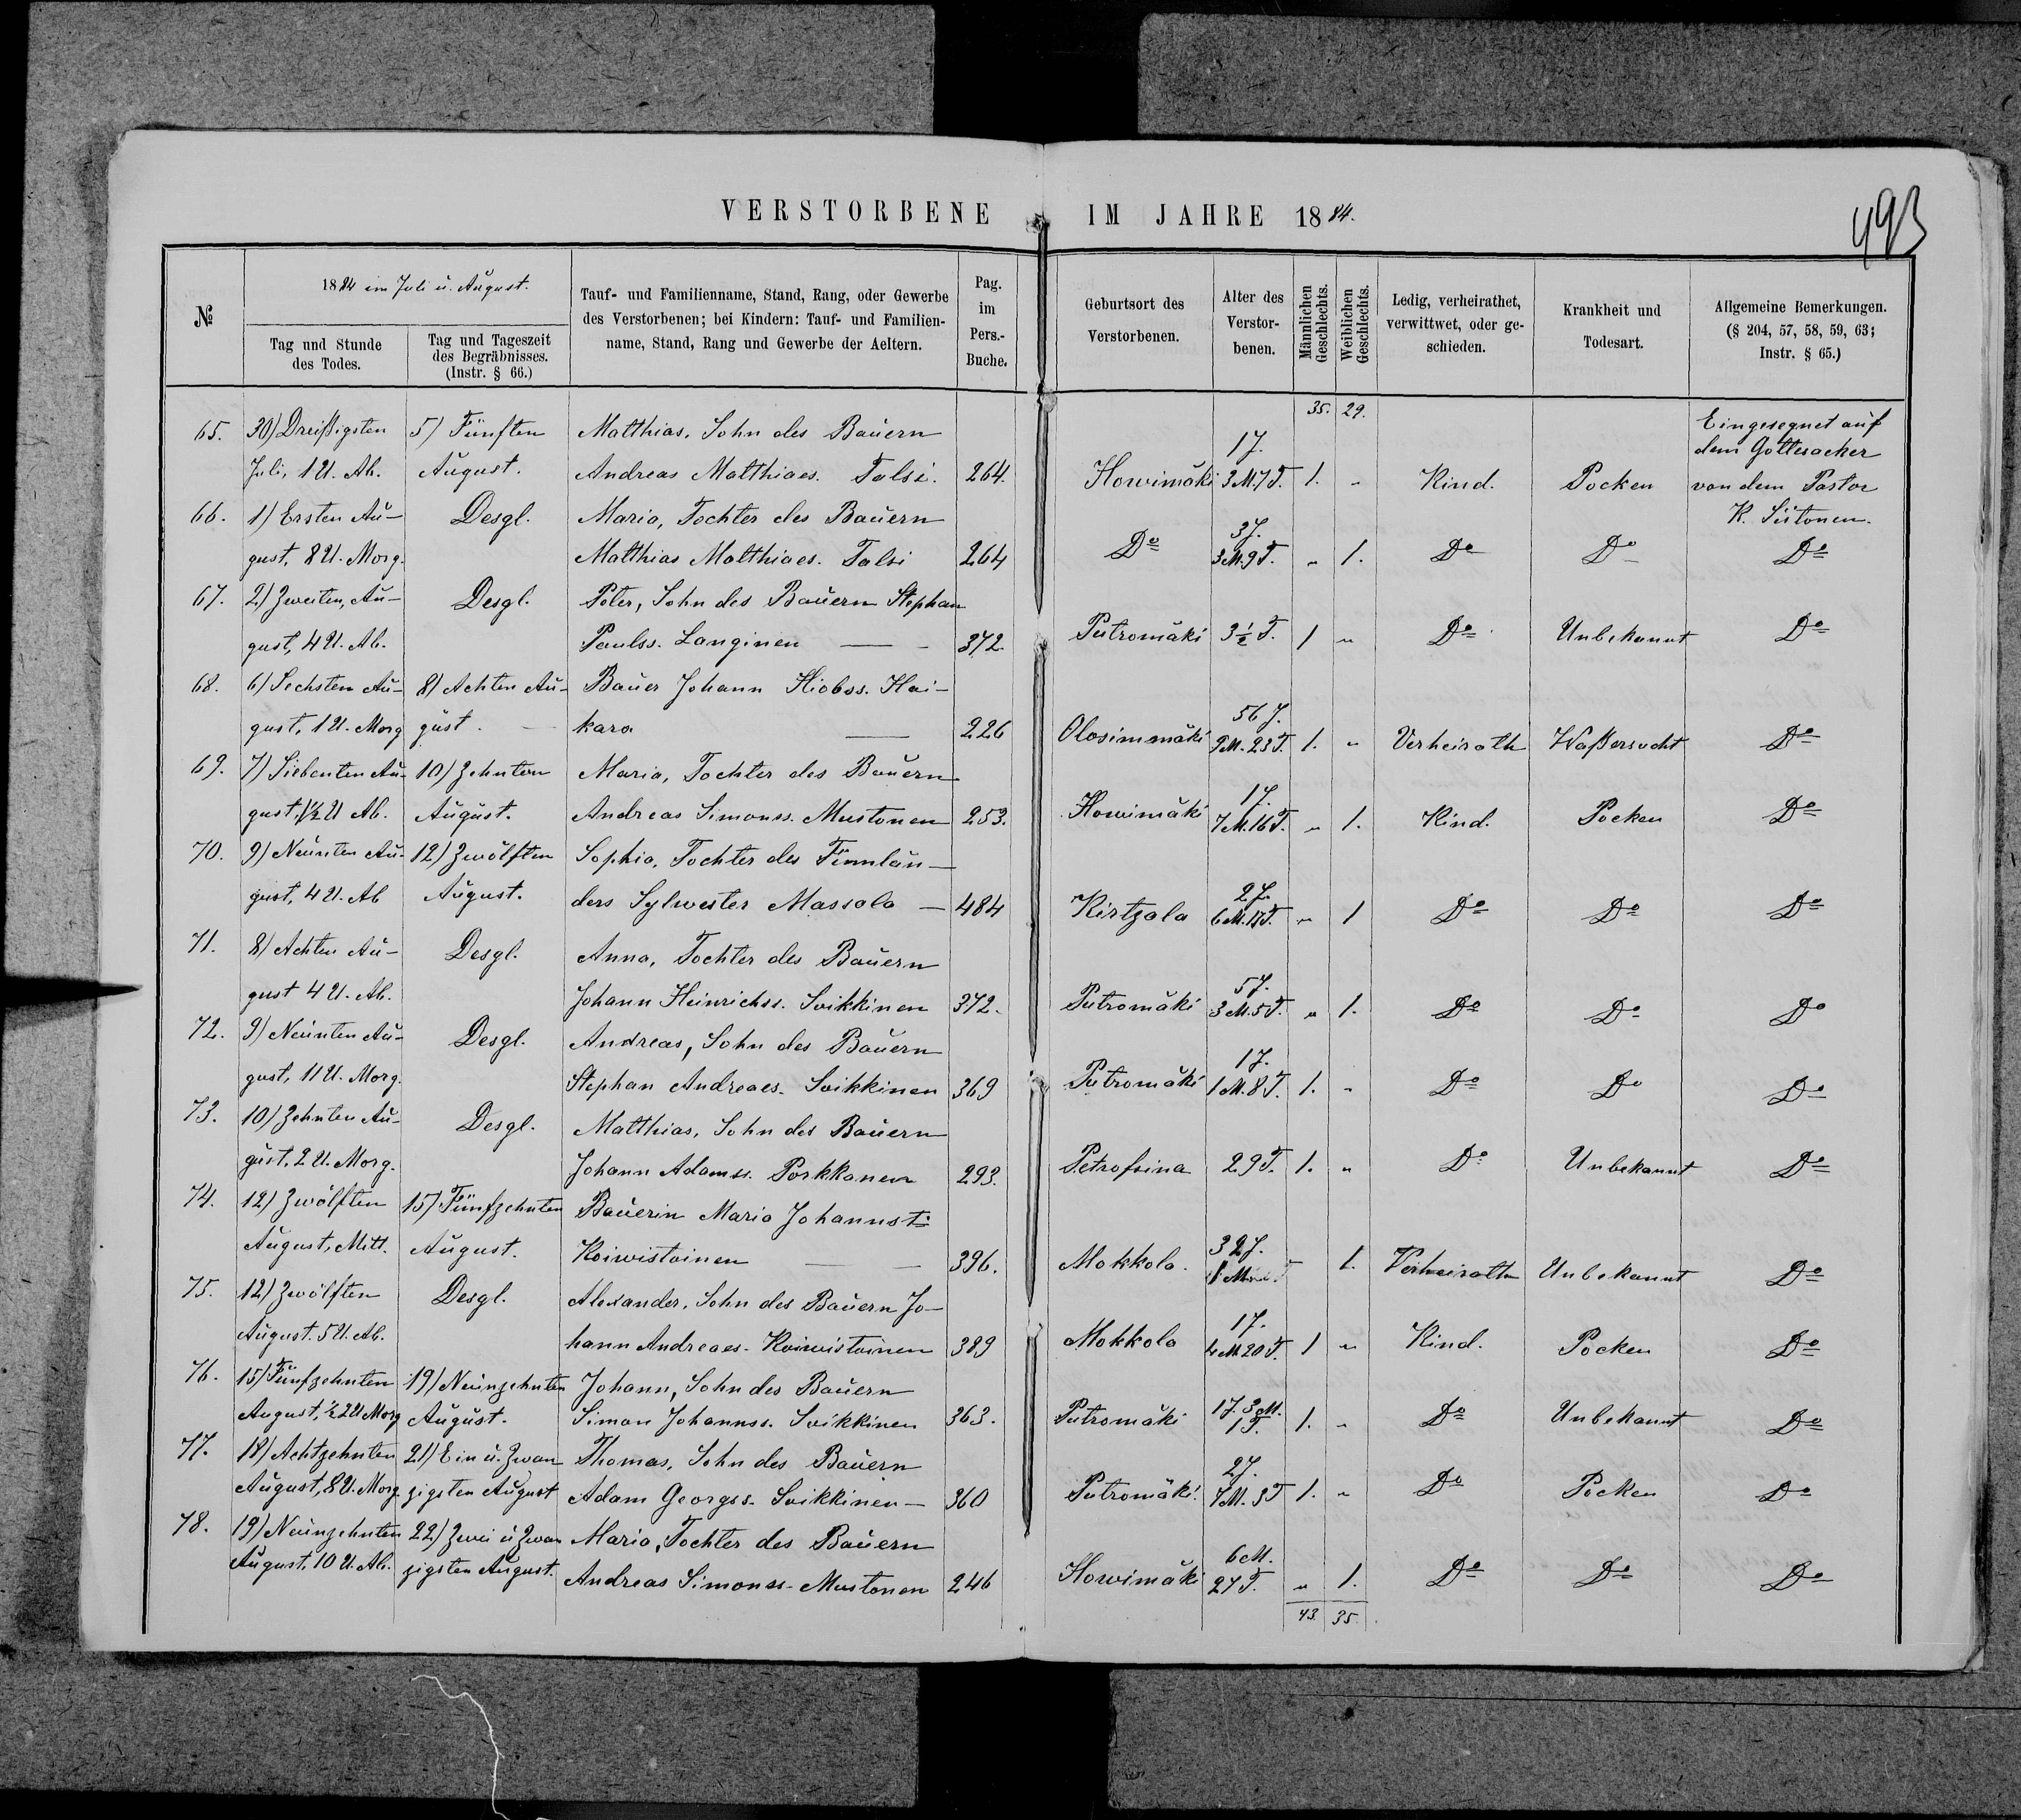 VERSTORBENE IM JAHRE 1884.
493
№
1884 im Juli u. August.
Tag und Stunde des Todes.
Tag und Tageszeit des Begräbnisses. (Instr. § 66.)
Tauf- und Familienname, Stand, Rang, oder Gewerbe
des Verstorbenen; bei Kindern: Tauf- und Familien-
name, Stand, Rang und Gewerbe der Aeltern.
Pag. im Pers.- Buche.
Geburtsort des Verstorbenen.
Alter des Verstor- benen.
Männlichen Geschlechts.
Weiblichen Geschlechts.
Ledig, verheirathet, verwittwet, oder ge- schieden.
Krankheit und Todesart.
Allgemeine Bemerkungen. (§ 204, 57, 58, 59, 63; Instr. § 65.)
35. 29.
65. 30) Dreißigsten 5) Fünften Matthias, Sohn des Bauern 1 J. Eingesegnet auf dem Gottesacker
Juli, 1 U. Ab. August. Andreas Matthiaes. Talsi. 264. Howimäki 3 M. 7 T. 1. " Kind. Pocken von dem Pastor
K. Siitonen.
66. 1) Ersten Au- Desgl. Maria, Tochter des Bauern 3 J.
gust, 8 U. Morg. Matthias Matthiaes. Talsi 264 Do 3 M. 9 T. " 1. Do Do Do
67. 2) Zweiten, Au- Desgl. Peter, Sohn des Bauern Stephan
gust, 4 U. Ab. Paulss. Langinen — 372. Putromäki 3½ T. 1 " Do Unbekannt Do
68. 6) Sechsten Au- 8) Achten Au- Bauer Johann Hiobss. Hai- 56 J.
gust, 1 U. Morg gust. kara — 226 Olosimmäki 9 M. 23 T. 1. " Verheirath Waßersucht Do
69. 7) Siebenten Au- 10) Zehnten Maria, Tochter des Bauern 1 J.
gust, 1½ U Ab. August. Andreas Simonss. Mustonen 253. Howimäki 7 M. 16 T. " 1. Kind. Pocken Do
70. 9) Neunten Au- 12) Zwölften Sophia, Tochter des Finnlän- 2 J.
gust, 4 U. Ab August. ders Sylwester Massala — 484 Kirtzala 6 M. 17 T. " 1 Do Do Do
71. 8) Achten Au- Desgl. Anna, Tochter des Bauern 5 J.
gust 4 U. Ab. Johann Heinrichss. Soikkinen 372. Putromäki 3 M. 5 T. " 1. Do Do Do
72. 9) Neunten Au- Desgl. Andreas, Sohn des Bauern 1 J.
gust, 11 U. Morg. Stephan Andreaes. Soikkinen 369 Putromäki 1 M. 8 T. 1. " Do Do Do
73. 10) Zehnten Au- Desgl. Matthias, Sohn des Bauern
gust, 2 U. Morg. Johann Adamss. Porkkanen 293. Petrofsina 29 T. 1. " Do Unbekannt Do
74. 12) Zwölften 15) Fünfzehnten Bauerin Maria Johannst: 32 J.
August, Mitt. August. Koiwistoinen — 396. Mokkola. 1. Verheirath Unbekannt Do
75. 12) Zwölften Desgl. Alexander, Sohn des Bauern Jo- 1 J.
August. 5 U. Ab. hann Andreaes. Koiwistoinen 389 Mokkola 4 M 20 T. 1 " Kind. Pocken Do
76. 15) Fünfzehnten 19) Neunzehnten Johann, Sohn des Bauern
August, ½2 U Morg August. Simon Johannss. Soikkinen 363. Putromäki 1 J. 3 M. 1 T. 1. " Do Unbekannt Do
77. 18) Achtzehnten 21) Ein u. Zwan Thomas, Sohn des Bauern 2 J.
August, 8 U. Morg. zigsten August Adam Georgss. Soikkinen — 360 Putromäki. 7 M. 3 T 1. " Do Pocken Do
78. 19) Neunzehnten 22) Zwei u Zwan Maria, Tochter des Bauern 6 M.
August, 10 U. Ab. zigsten August. Andreas Simonss. Mustonen 246 Howimäki 27 T. " 1. Do Do Do
43. 35.